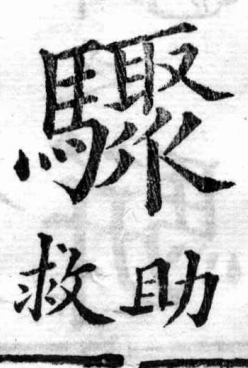 驟
助救